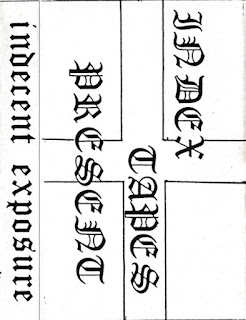 INDEX
TAPES
PRESENT
indecent exposure